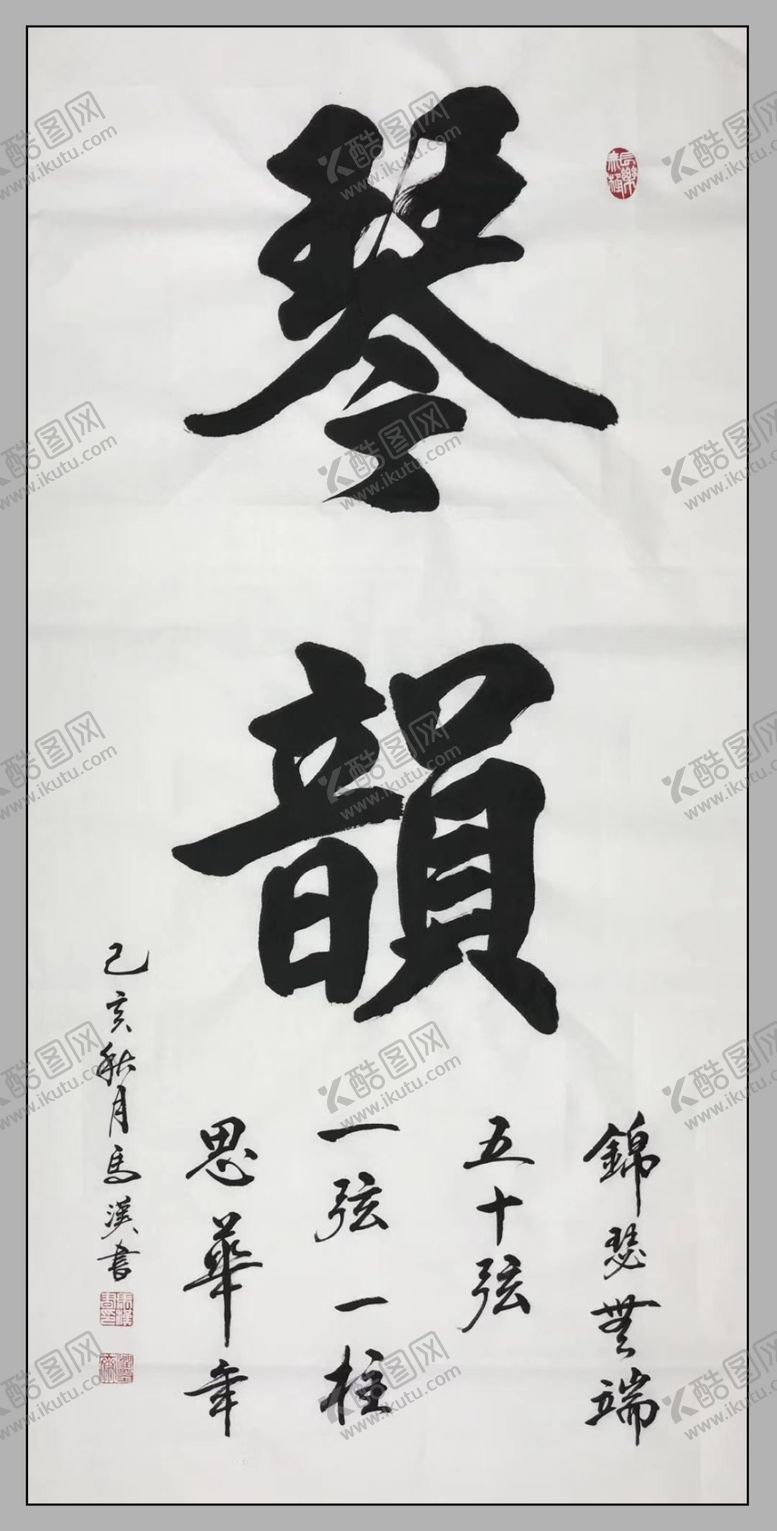 琴韻
錦瑟無端
五十弦
一弦一柱
思華年
己亥秋月馬漢書
長樂
無極
酷图网
www.ikutu.com